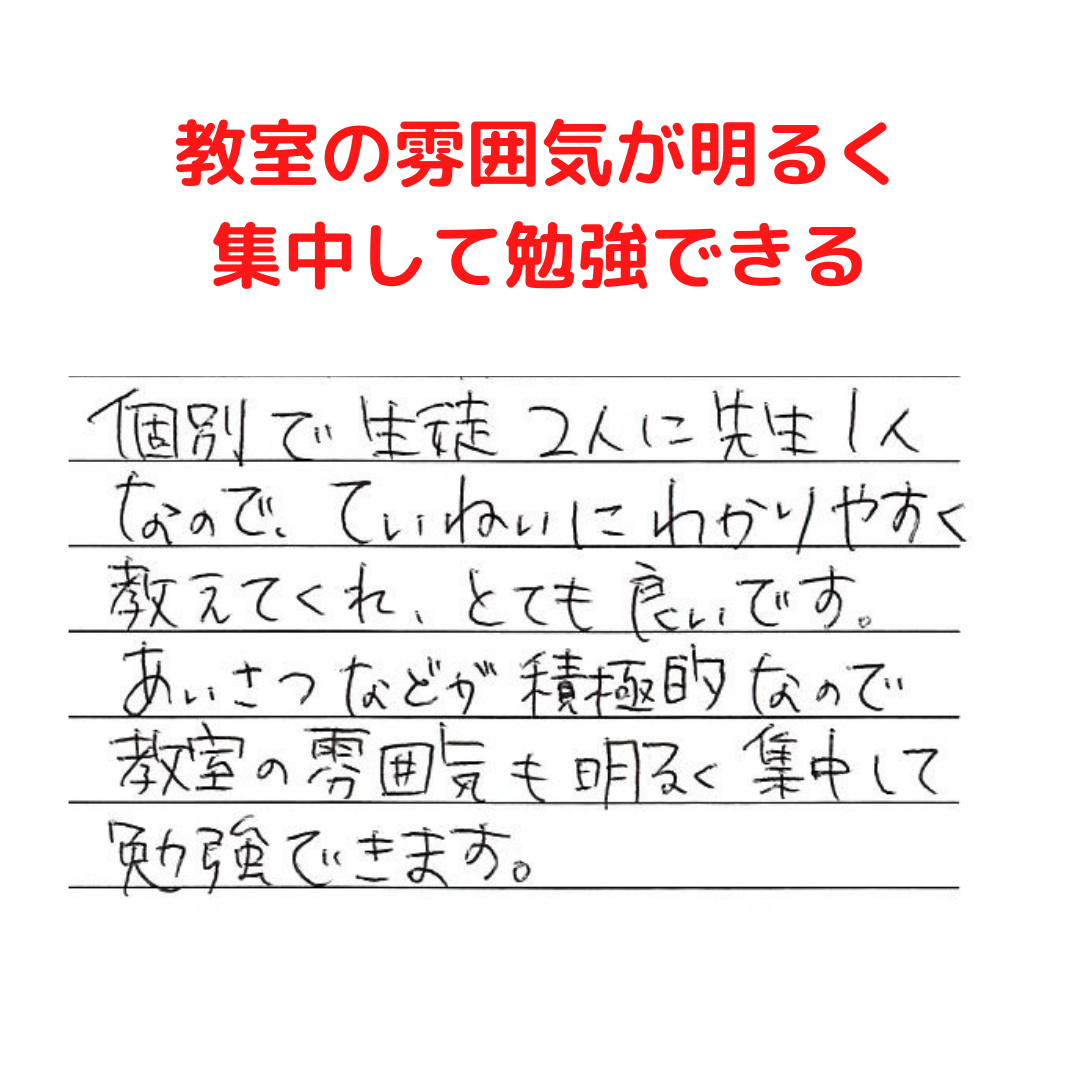 教室の雰囲気が明るく
集中して勉強できる
個別で生徒2人に先生1人
なので、ていねいにわかりやすく
教えてくれ、とても良いです。
あいさつなどが積極的なので
教室の雰囲気も明るく集中して
勉強できます。